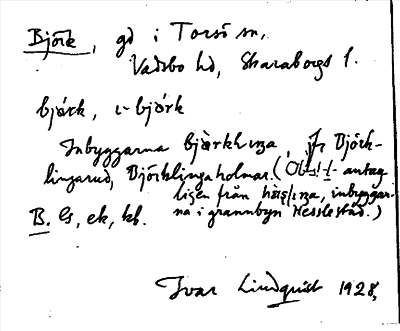 Björk, gd i Torsö sn,
Vadsbo hd, Skaraborgs l.
bjórk, i- bjórk
Inbyggarna bjàrkhıŋa, Jr Björk-
lingarud, Björklingaholmar. (Obs! -ı- antag
ligen från hàs/ıŋa, inbyggar-
na i grannbyn Hesslestad.)
B. G, ek, kb.
Ivar Lindquist 1928,